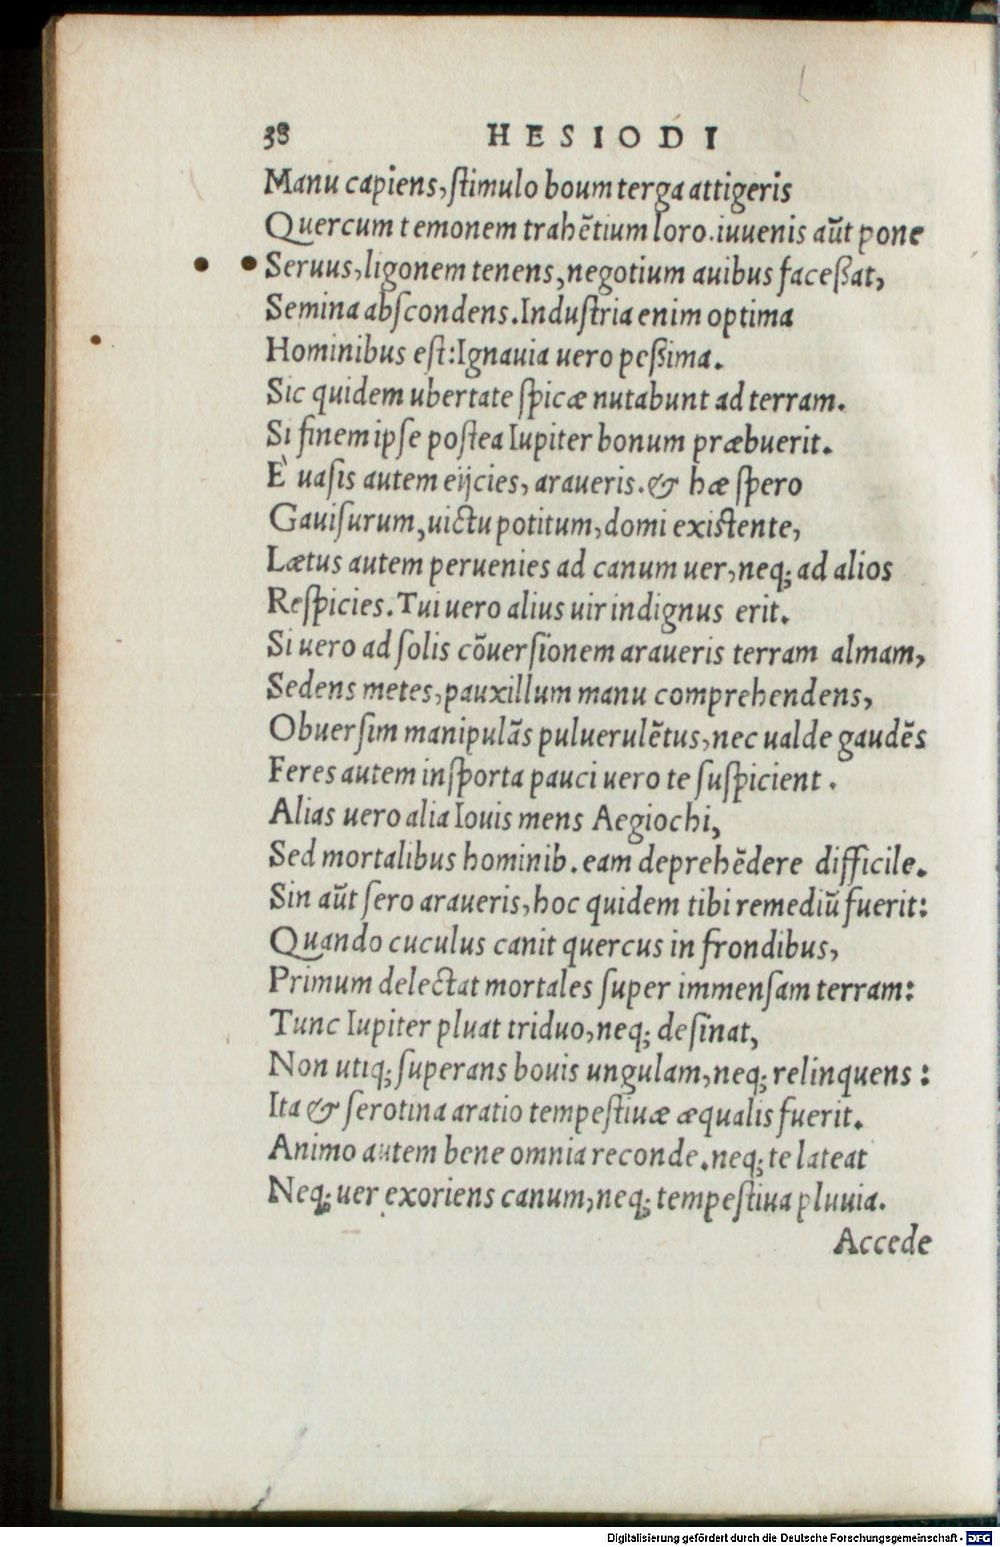 38 HESIODI
Manu capiens, ſtimulo boum terga attigeris
Quercum temonem trahẽtium loro. iuuenis aũt pone
Seruus, ligonem tenens, negotium auibus faceßat,
Semina abſcondens. Induſtria enim optima
Hominibus eſt: Ignauia uero peßima.
Sic quidem ubertate ſpicæ nutabunt ad terram.
Si finem ipſe poſtea Iupiter bonum præbuerit.
E` uaſis autem eijcies, araueris. & hæ ſpero
Gauiſurum, uictu potitum, domi existente,
Lætus autem peruenies ad canum uer, neq; ad alios
Reſpicies. Tui uero alius uir indignus erit.
Si uero ad ſolis cõuerſionem araueris terram almam,
Sedens metes, pauxillum manu comprehendens,
Obuerſim manipulãs puluerulẽtus, nec ualde gaudẽs
Feres autem in ſporta pauci uero te ſuſpicient.
Alias uero alia Iouis mens Aegiochi,
Sed mortalibus hominib. eam deprehẽdere difficile.
Sin aũt ſero araueris, hoc quidem tibi remediũ fuerit:
Quando cuculus canit quercus in frondibus,
Primum delectat mortales ſuper immenſam terram:
Tunc Iupiter pluat triduo, neq; deſinat,
Non utiq; ſuperans bouis ungulam, neq; relinquens:
Ita & ſerotina aratio tempeſtiuæ æqualis fuerit.
Animo autem bene omnia reconde. neq; te lateat
Neq; uer exoriens canum, neq; tempeſtiua pluuia.
Accede
Digitalisierung gefördert durch die Deutsche Forschungsgemeinschaft - DFG